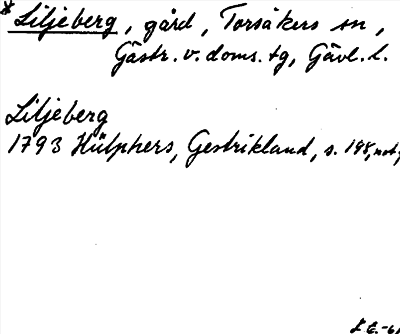 * Liljeberg, gård, Torsåkers sn,
Gästr. v. doms. tg, Gävl. l.
Liljeberg
1793 Hülphers, Gestrikland, s. 198, not.